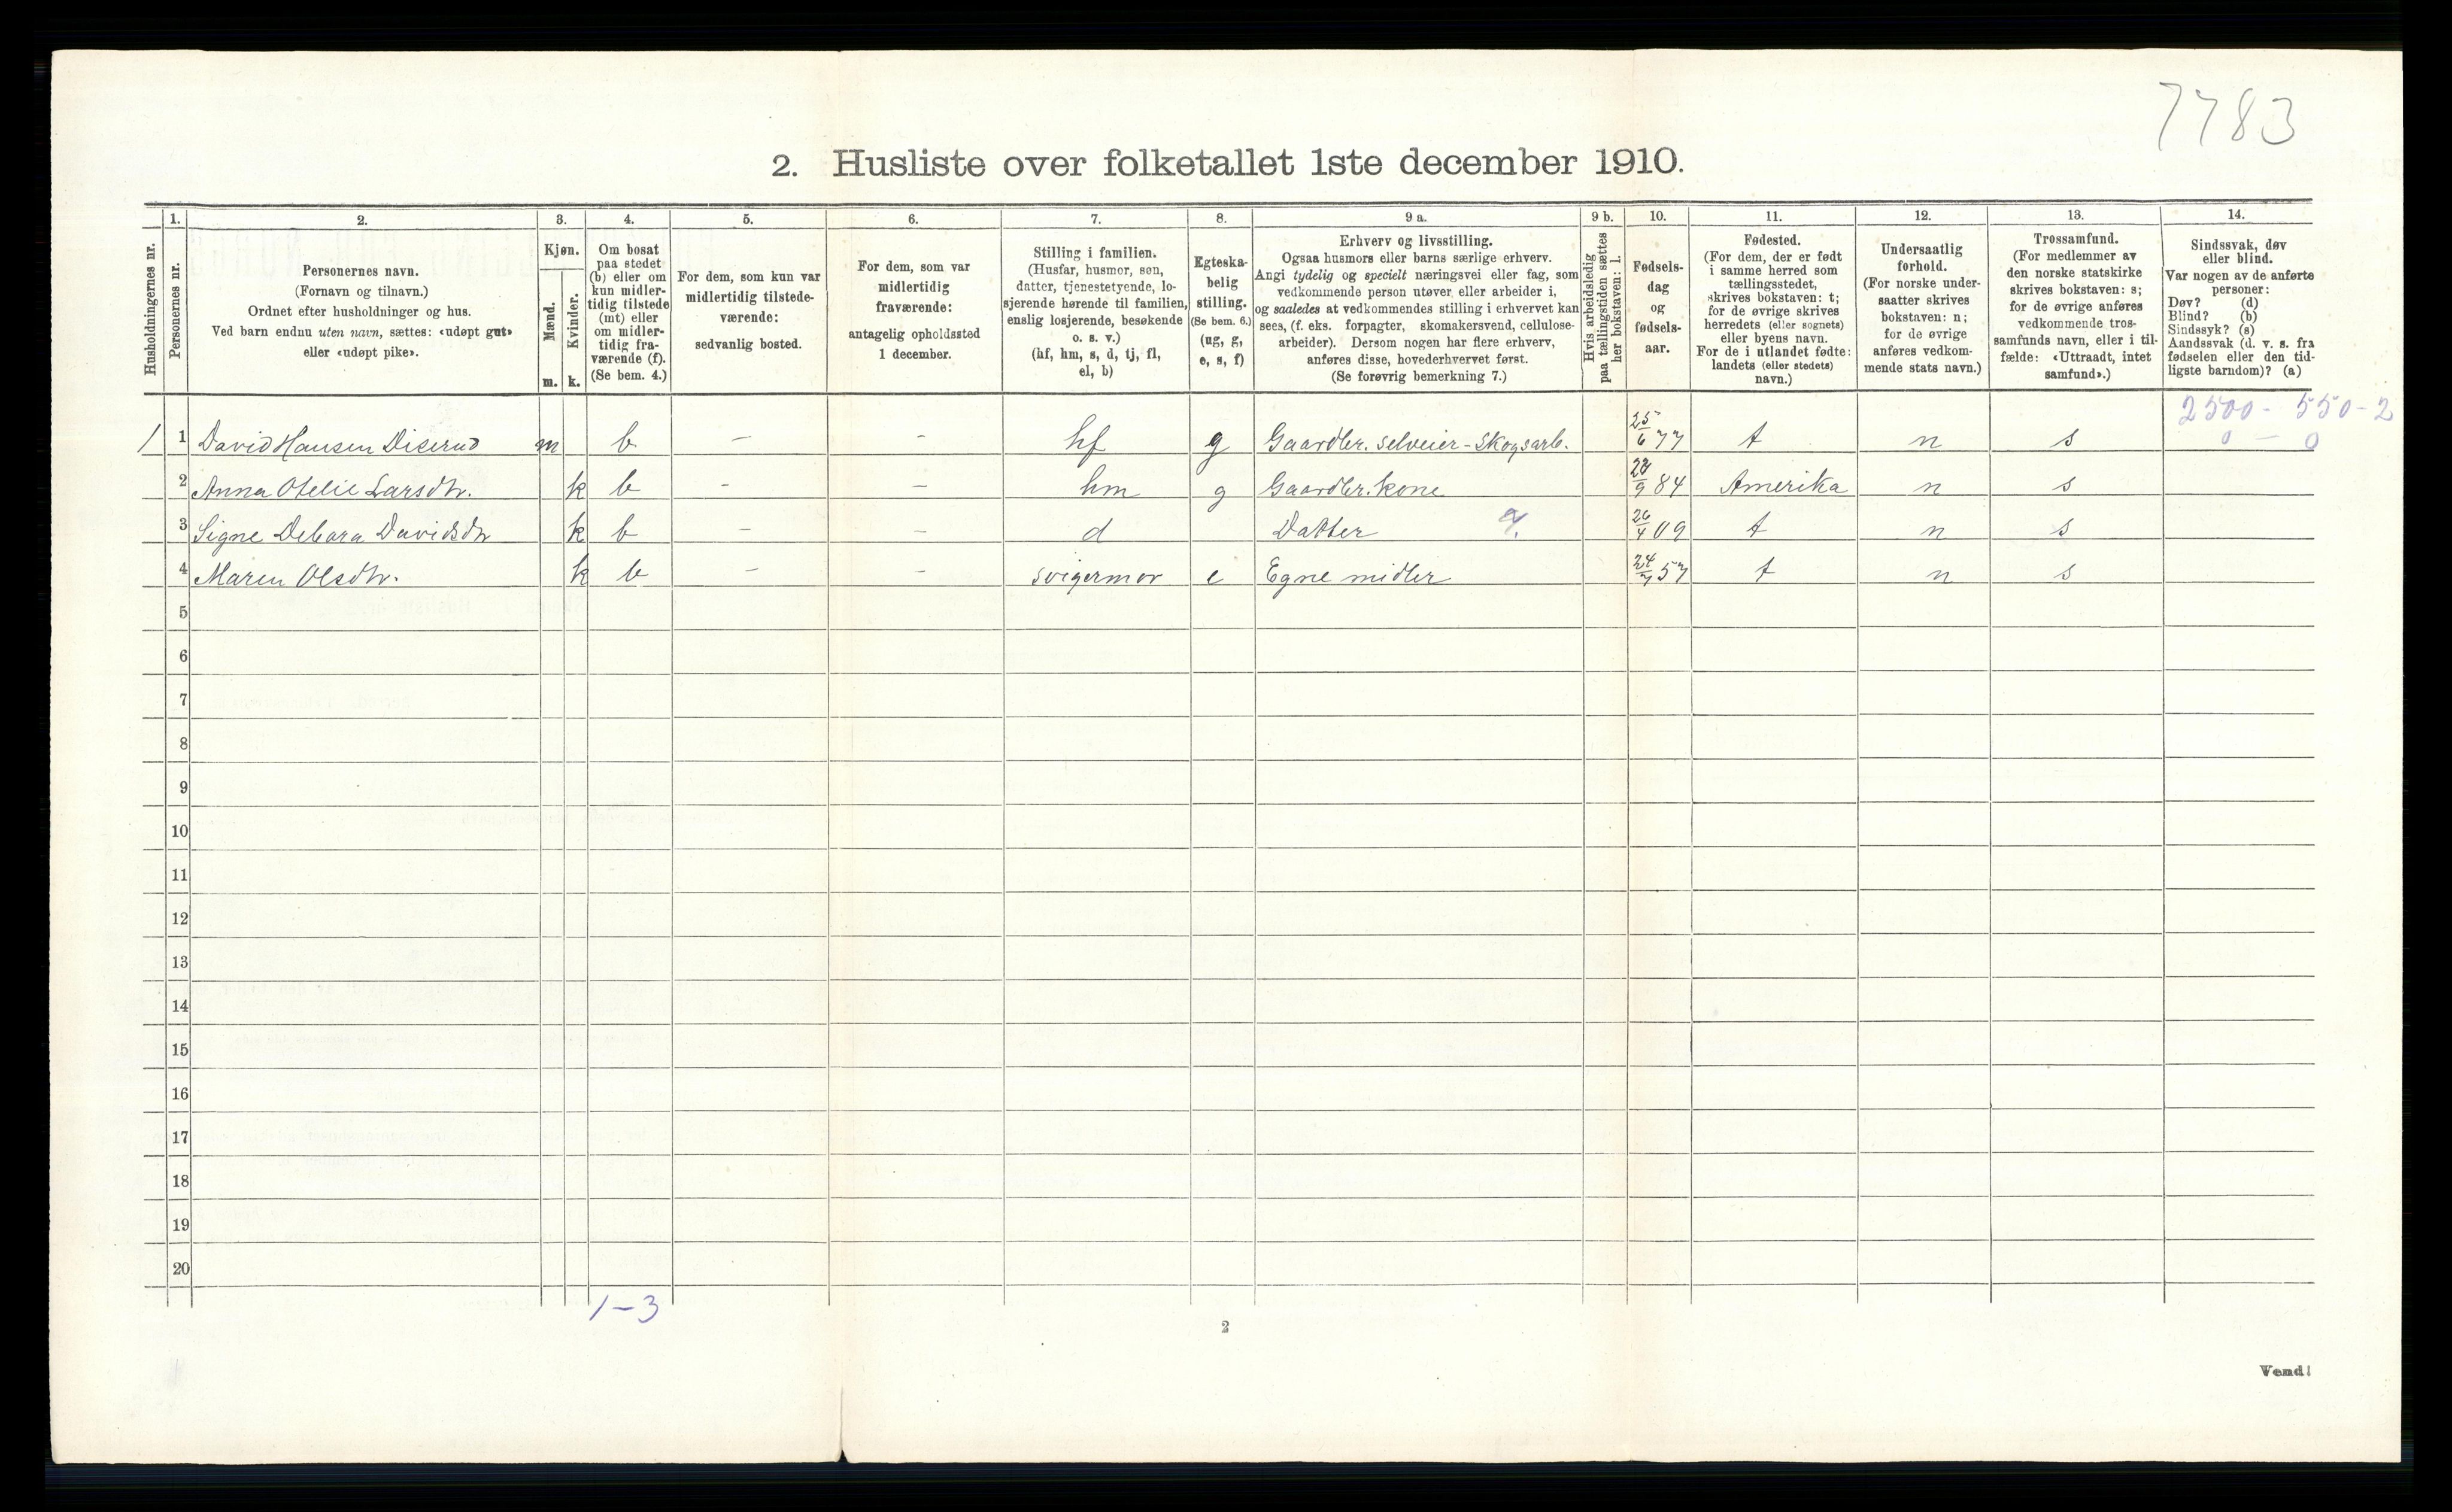 7783
2. Husliste over folketallet 1ste december 1910.
Husholdningernes nr.
1.
Personernes nr.
2.
Personernes navn.
(Fornavn og tilnavn.)
Ordnet efter husholdninger og hus.
Ved barn endnu uten navn, sættes: «udøpt gut»
eller «udøpt pike».
3.
Kjøn.
Mænd.
Kvinder.
m. k.
4.
Om bosat
paa stedet
(b) eller om
kun midler-
tidig tilstede
(mt) eller
om midler-
tidig fra-
værende (f).
(Se bem. 4.)
5.
For dem, som kun var
midlertidig tilstede-
værende:
sedvanlig bosted.
6.
For dem, som var
midlertidig
fraværende:
antagelig opholdssted
1 december.
7.
Stilling i familien.
(Husfar, husmor, søn,
datter, tjenestetyende, lo-
sjerende hørende til familien,
enslig losjerende, besøkende
o. s. v.)
(hf, hm, s, d, tj, fl,
el, b)
8.
Egteska-
belig
stilling.
(Se bem. 6.)
(ug, g,
e, s, f)
9 a.
Erhverv og livsstilling.
Ogsaa husmors eller barns særlige erhverv.
Angi tydelig og specielt næringsvei eller fag, som
vedkommende person utøver eller arbeider i,
og saaledes at vedkommendes stilling i erhvervet kan
sees, (f. eks. forpagter, skomakersvend, cellulose-
arbeider). Dersom nogen har flere erhverv,
anføres disse, hovederhvervet først.
(Se forøvrig bemerkning 7.)
9 b.
Hvis arbeidsledig
paa tællingstiden sættes
her bokstaven: l.
10.
Fødsels-
dag
og
fødsels-
aar.
11.
Fødested.
(For dem, der er født
i samme herred som
tællingsstedet,
skrives bokstaven: t;
for de øvrige skrives
herredets (eller sognets)
eller byens navn.
For de i utlandet fødte:
landets (eller stedets)
navn.)
12.
Undersaatlig
forhold.
(For norske under-
saatter skrives
bokstaven: n;
for de øvrige
anføres vedkom-
mende stats navn.)
13.
Trossamfund.
(For medlemmer av
den norske statskirke
skrives bokstaven: s;
for de øvrige anføres
vedkommende tros-
samfunds navn, eller i til-
fælde: «Uttraadt, intet
samfund».)
14.
Sindssvak, døv
eller blind.
Var nogen av de anførte
personer:
Døv? (d)
Blind? (b)
Sindssyk? (s)
Aandssvak (d. v. s. fra
fødselen eller den tid-
ligste barndom)? (a)
2500 - 550 - 2
0 - 0
1 1 David Hansen Diserud m b - - hf g Gaardbr. selveier - Skogsarb. 25/6 77 t n s
2 Anna Otelie Larsdtr. k b - - hm g Gaardbr. kone 9 84 Amerika n s
3 Signe Debora Davidsdtr k b - - d Datter 26/4 09 t n s
4 Maren Olsdtr. k b - - svigermor e Egne midler 24/7 57 t n s
5
6
7
8
9
10
11
12
13
14
15
16
17
18
19
20
1-3
2
Vend!